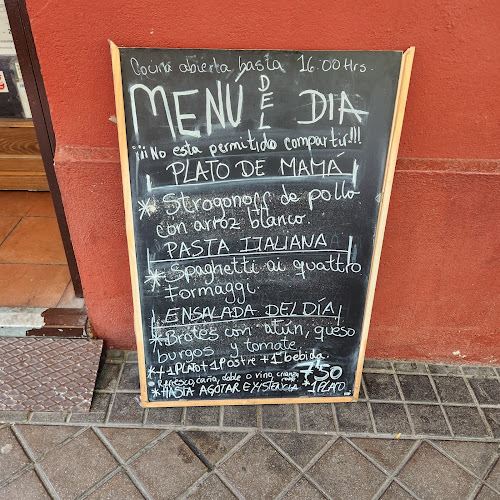 Cocina abierta hasta 16:00 Hrs.
MENÚ DEL DIA
¡¡¡No esta permitido compartir!!!
PLATO DE MAMÁ
* Strogonoff de pollo
con arroz blanco.
PASTA ITALIANA
* Spaghetti ai quattro
Formaggi.
ENSALADA DEL DÍA
* Brotes con atún, queso
burgos y tomate.
* +1 PLATO +1 POSTRE +1 bebida.
Refresco, caña, doble o vino,
* HASTA AGOTAR EXISTENCIA
750
1 PLATO